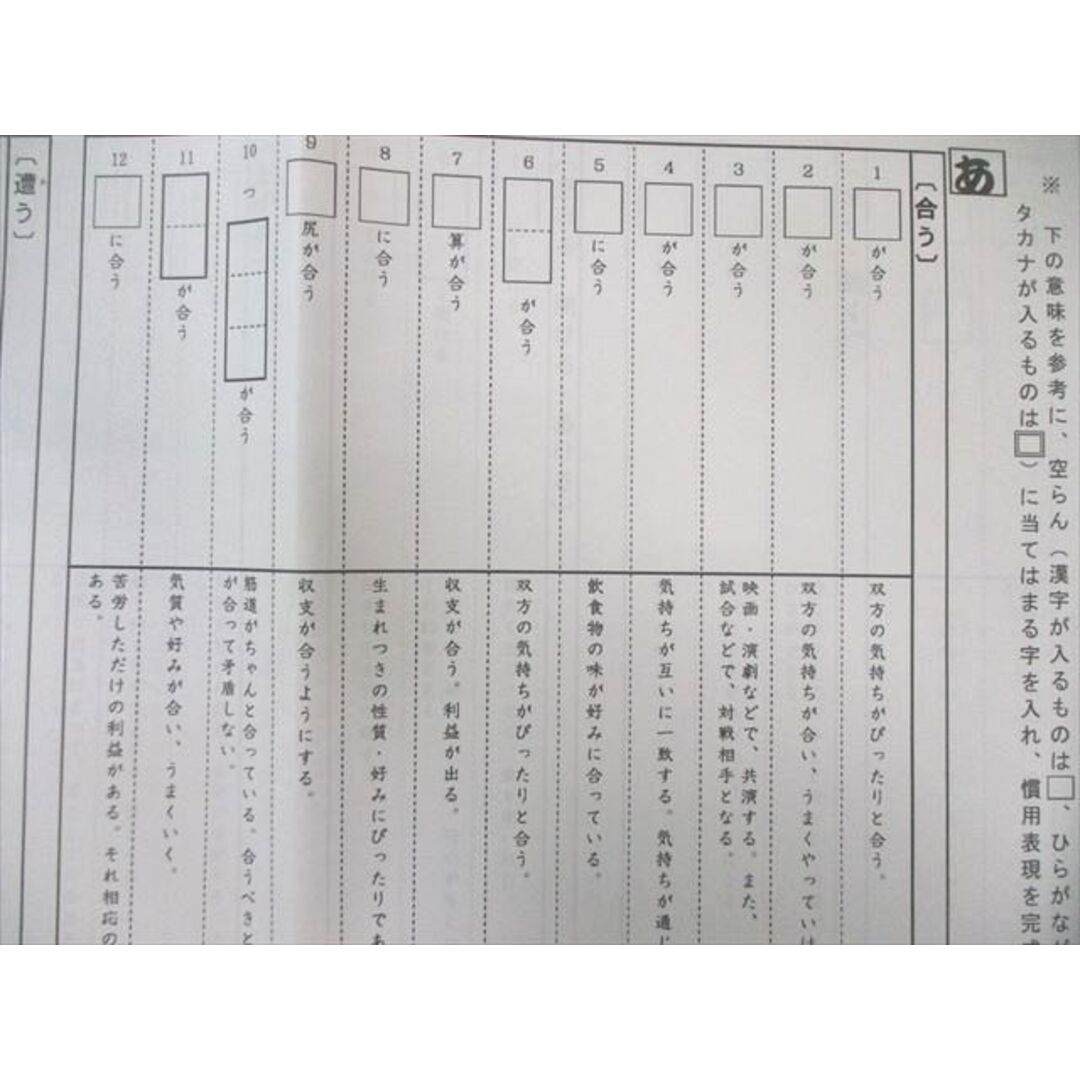 ※ 下の意味を参考に、空らん(漢字が入るものは□、ひらがな
タカナが入るものは□)に当てはまる字を入れ、慣用表現を完
あ
〔合う〕
1 □が合う
双方の気持ちがぴったりと合う。
2 □が合う
双方の気持ちが合い、うまくやってい
3 □が合う
映画・演劇などで、共演する。また、
試合などで、対戦相手となる。
4 □が合う
気持ちが互いに一致する。気持ちが通
5 □に合う
飲食物の味が好みに合っている。
6 □が合う
双方の気持ちがぴったりと合う。
7 □算が合う
収支が合う。利益が出る。
8 □に合う
生まれつきの性質・好みにぴったりであ
9 □尻が合う
収支が合うようにする。
10 つ□が合う
筋道がちゃんと合っている。合うべきと
が合って矛盾しない。
11 □が合う
気質や好みが合い、うまくいく。
12 □に合う
苦労しただけの利益がある。それ相応の
ある。
〔遭う〕